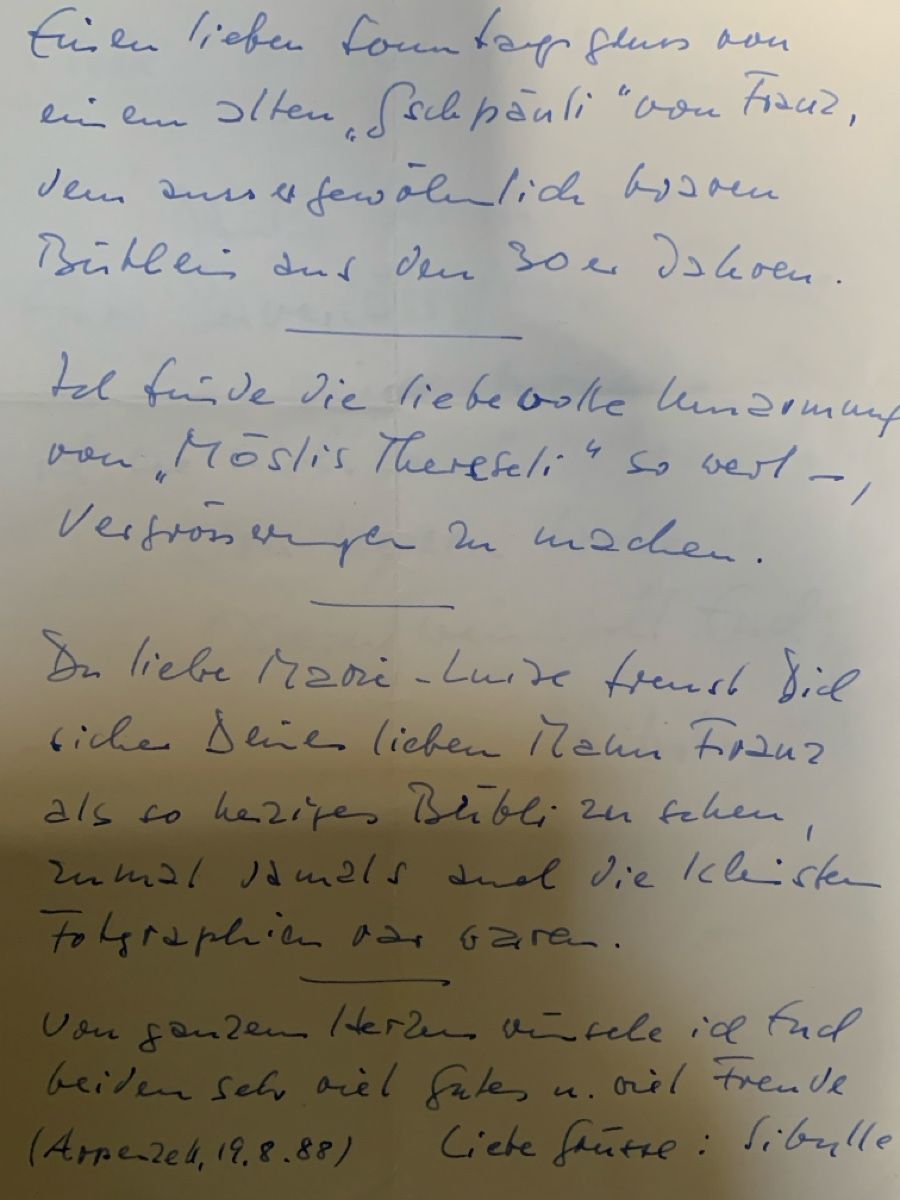 Einen lieben Sonntagsgruss von
einem alten „Gschpänli“ von Franz,
dem aussergewöhnlich braven
Büblein aus den 30er Jahren.
Ich finde die liebevolle Umarmung
von „Möslis Thereseli“ so wert –,
Vergrösserungen zu machen.
Du liebe Marie-Luise freust Dich
sicher Deinen lieben Mann Franz
als so herziges Bübli zu sehen,
zumal damals auch die kleinsten
Fotographien rar waren.
Von ganzem Herzen wünsche ich Euch
beiden sehr viel Gutes u. viel Freude
(Appenzell, 19.8.88) Liebe Grüsse: Sibylle